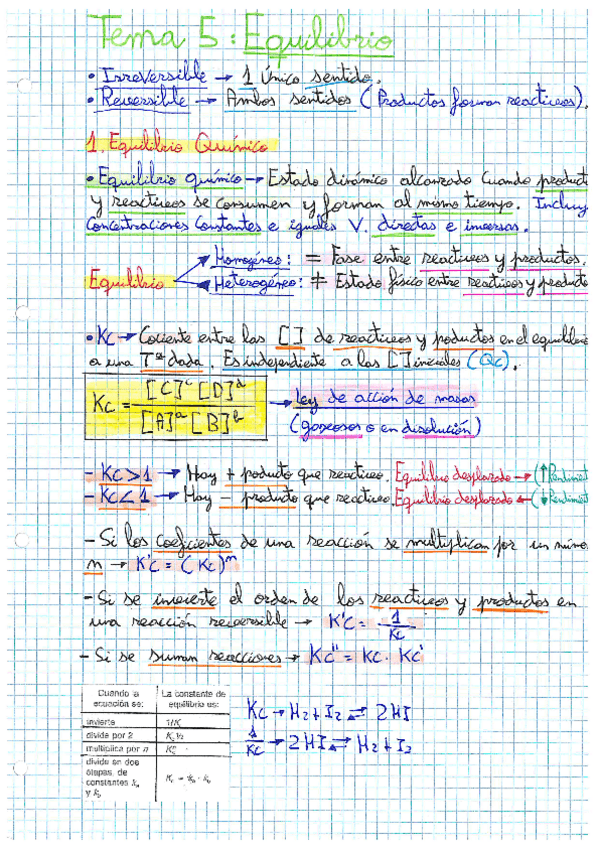 Tema 5: Equilibrio
• Irreversible → 1 único sentido.
• Reversible → Ambos sentidos (Productos forman reactivos).
1. Equilibrio Químico
• Equilibrio químico → Estado dinámico alcanzado cuando product
y reactivos se consumen y forman al mismo tiempo. Incluy
Concentraciones constantes e iguales V. directas e inversas.
Equilibrio
Homogéneo: = Fase entre reactivos y productos.
Heterogéneo: ≠ Estado físico entre reactivos y producto
• Kc → Cociente entre las [ ] de reactivos y productos en el equilibrio
a una Tª dada. Es independiente a las [ ] iniciales (Qc).
Kc = [C]ᶜ [D]ᵈ / [A]ᵃ [B]ᵇ → Ley de acción de masas
(gaseosos o en disolución)
- Kc > 1 → Hay + producto que reactivo. Equilibrio desplazado → (↑Rendimient
- Kc < 1 → Hay - producto que reactivo. Equilibrio desplazado ← (↓Rendimient
- Si los coeficientes de una reacción se multiplican por un núme
m → K'c = (Kc)ᵐ
- Si se invierte el orden de los reactivos y productos en
una reacción reversible → K'c = 1/Kc
- Si se suman reacciones → Kc'' = Kc · Kc'
Cuando la ecuación se: La constante de equilibrio es:
invierte 1/Kc
divide por 2
multiplica por n
divide en dos etapas, de constantes
Kc → H₂ + I₂ ⇌ 2HI
1/Kc → 2HI ⇌ H₂ + I₂